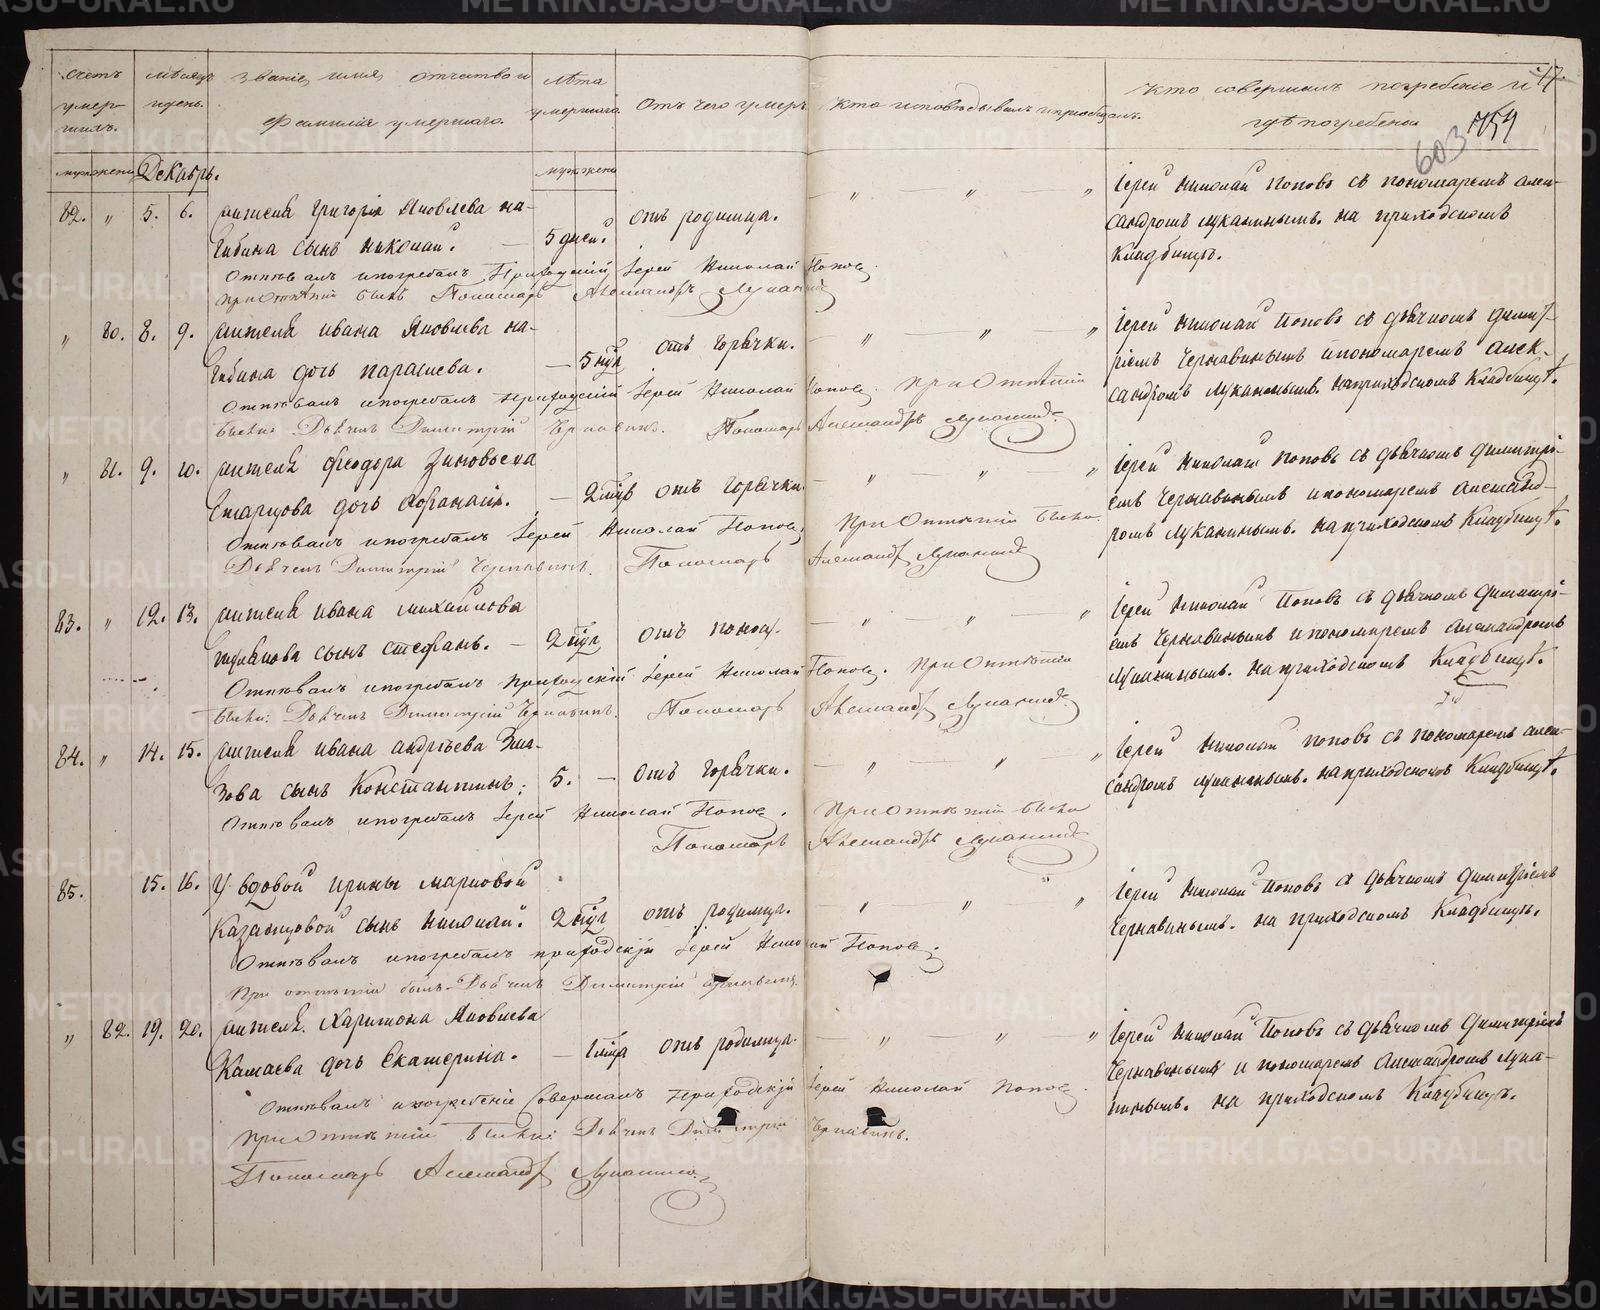 Счетъ умер-шихъ.
Мѣсяцъ и день.
Званіе, имя, отчество и фамилія умершаго.
Лѣта умершаго.
Отъ чего умеръ.
Кто исповѣдывалъ и пріобщалъ.
Кто совершалъ погребеніе и гдѣ погребены.
17.
603
759
муж. жен. Декабрь. муж. жен.
82. „ 5. 6. жителя Григорія Яковлева на-
гибина сынъ Николай. — 5 дней. отъ родимца. „ „ „
Іерей Николай Поповъ съ пономаремъ алек-
сандромъ Луканинымъ. на приходскомъ
Кладбищѣ.
Отпѣвалъ и погребалъ Приходскій Іерей Николай Поповъ
При Отпѣтіи былъ Пономарь Александръ Луканинъ
„ 80. 8. 9. жителя Ивана Яковлева на-
гибина дочь параскева. — 5 отъ горячки. „ „ „
Іерей Николай Поповъ съ дьячкомъ Димит-
ріемъ Чернавинымъ и пономаремъ Алек-
сандромъ Луканинымъ. на приходскомъ Кладбищѣ.
Отпѣвалъ и погребалъ приходскій Іерей Николай Поповъ. При Отпѣтіи
были: Дьячекъ Димитрій Чернавинъ. Пономарь Александръ Луканинъ
„ 81. 9. 10. жителя Феодора Зиновьева
дочь — 2 отъ горячки. „ „ „
Іерей Николай Поповъ съ дьячкомъ Димитрі-
емъ Чернавинымъ и пономаремъ Александ-
ромъ Луканинымъ. на приходскомъ Кладбищѣ.
Отпѣвалъ и погребалъ Іерей Николай Поповъ При Отпѣтіи были
Дьячекъ Димитрій Чернавинъ. Пономарь Александръ Луканинъ
83. „ 12. 13. жителя Ивана Михайлова
сынъ Стефанъ. — 2 отъ поноса. „ „ „
Іерей Николай Поповъ съ дьячкомъ Димитрі-
емъ Чернавинымъ и пономаремъ Александромъ
Луканинымъ. на приходскомъ Кладбищѣ.
Отпѣвалъ и погребалъ Приходскій Іерей Николай Поповъ. При Отпѣтіи
были: Дьячекъ Димитрій Чернавинъ. Пономарь Александръ Луканинъ
84. „ 14. 15. жителя Ивана Андрѣева
сынъ Константинъ. 5. — отъ горячки. „ „ „
Іерей Николай Поповъ съ пономаремъ алек-
сандромъ Луканинымъ. на приходскомъ Кладбищѣ.
Отпѣвалъ и погребалъ Іерей Николай Поповъ. При Отпѣтіи былъ
Пономарь Александръ Луканинъ
85. 15. 16. У вдовой Ирины Марковой
Казанцовой сынъ Николай. 2 отъ родимца. „ „ „
Іерей Николай Поповъ съ дьячкомъ Димитріемъ
Чернавинымъ. на приходскомъ Кладбищѣ.
Отпѣвалъ и погребалъ приходскій Іерей Николай Поповъ.
При отпѣтіи былъ Дьячекъ Димитрій Чернавинъ.
„ 82. 19. 20. жителя Харитона Яковлева
Камаева дочь Екатерина. — 1 отъ родимца. „ „ „
Іерей Николай Поповъ съ дьячкомъ Димитріемъ
Чернавинымъ и пономаремъ Александромъ Лука-
нинымъ. на приходскомъ Кладбищѣ.
Отпѣвалъ и погребеніе Совершалъ Приходскій Іерей Николай Поповъ.
При Отпѣтіи были: Дьячекъ Димитрій Чернавинъ.
Пономарь Александръ Луканинъ
METRIKI.GASO-URAL.RU